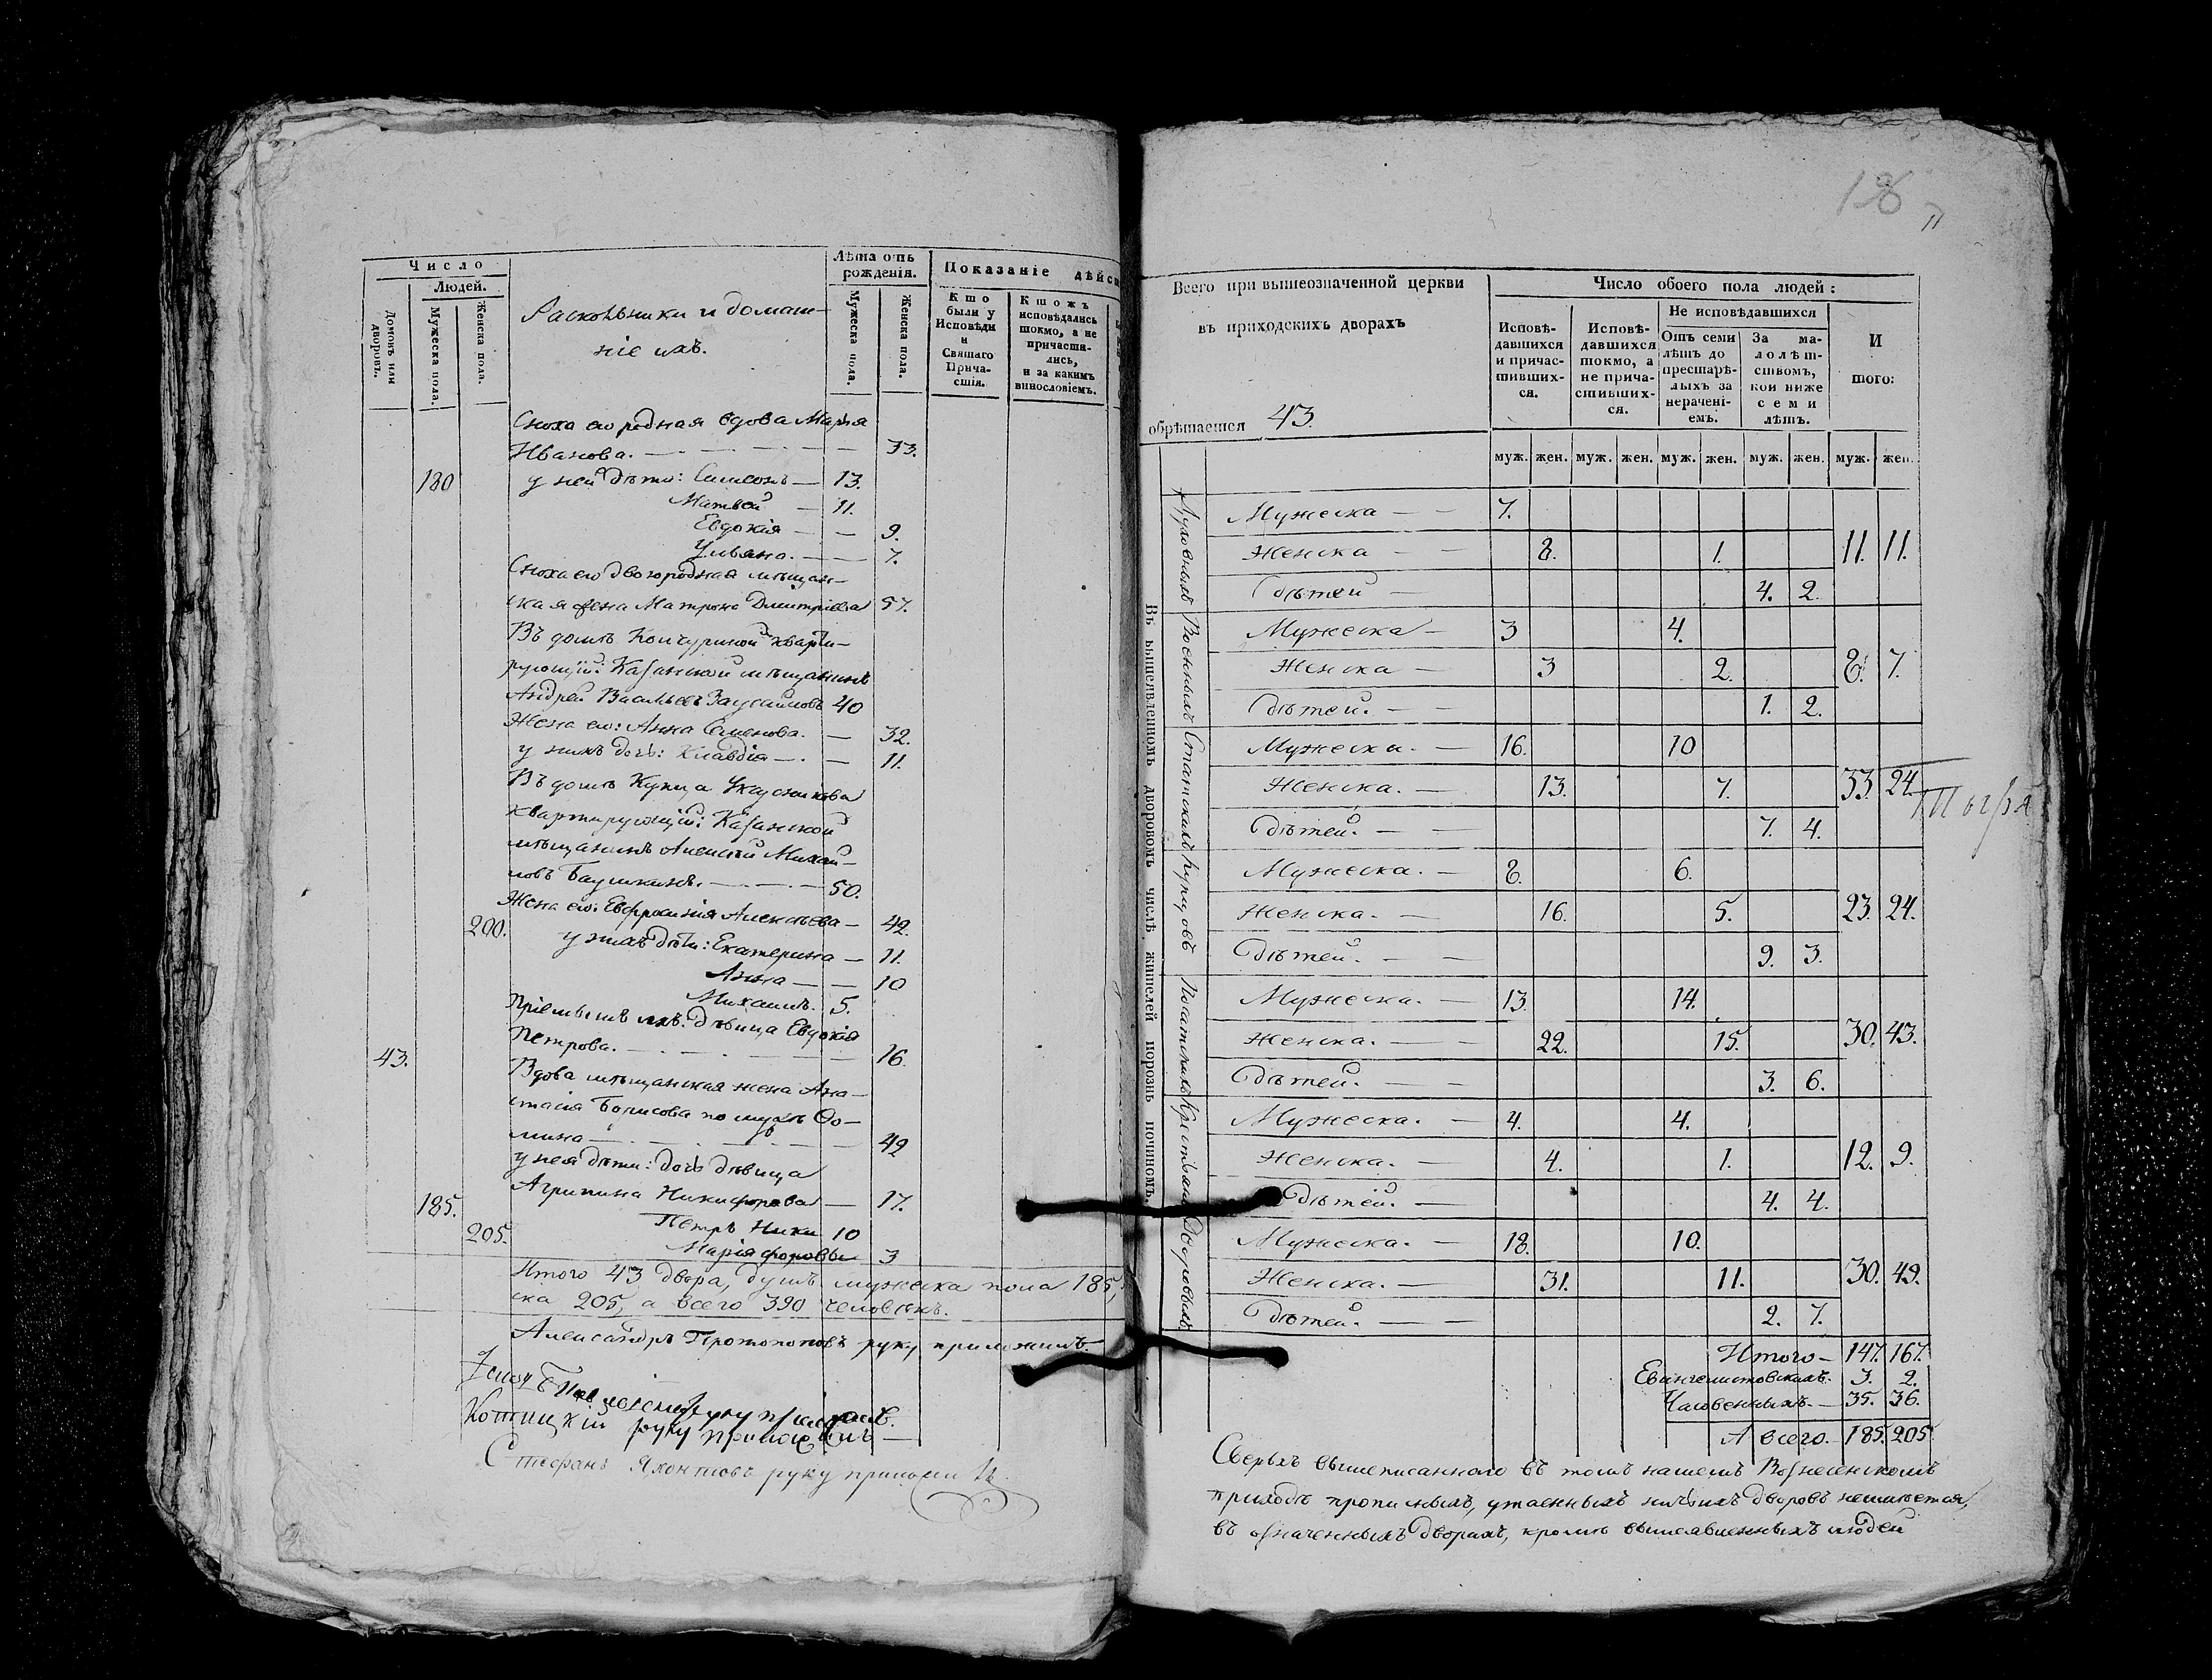 Число
Людей.
Домовъ или дворовъ.
Мужеска пола.
Женска пола.
Раскольники и домаш-
ніе ихъ.
Лѣта отъ рожденія.
Мужеска пола.
Женска пола.
Показаніе дѣйст
Кто были у Исповѣди и Святаго Прича- стія.
Кто жъ исповѣдались токмо, а не причасти- лись, и за какимъ винословіемъ.
Сноха его родная вдова Марья
Иванова. — 33.
180 у ней дѣти: Симеонъ — 13.
Матвей — 11.
Евдокія — 9.
Ульяна. — 7.
Сноха его двоюродная мѣщан-
ская жена Матрона Дмитріева 57.
Въ домѣ Кончуриной кварти-
рующій: Казанской мѣщанинъ
Андрей Васильевъ Заусайловъ 40
Жена его: Анна Семенова. — 32.
у нихъ дочь: Клавдія — 11.
Въ домѣ Купца
квартирующій: Казанской
мѣщанинъ Алексѣй Михай-
ловъ Баушкинъ. — 50.
Жена его: Евфросинія Алексѣева — 42.
200. у нихъ дѣти: Екатерина — 11.
Анна — 10
Михаилъ. 5.
Пріемышъ ихъ: дѣвица Евдокія
Петрова. — 16.
43. Вдова мѣщанская жена Ана-
стасія Борисова по мужѣ Фо-
мина — 42
у нея дѣти: дочь дѣвица
Агрипина Никифорова — 17.
185. Петръ Ники 10
205. Марія форовы 3
Итого 43 двора, душъ мужеска пола 185,
ска 205, а всего 390 человѣкъ.
Александръ Протопоповъ руку приложилъ.
руку приложилъ.
руку приложилъ —
Стефанъ Яхонтовъ руку приложилъ
11
Всего при вышеозначенной церкви
въ приходскихъ дворахъ
обрѣтается 43.
Число обоего пола людей:
Исповѣ- давшихся и причас- тивших- ся.
Исповѣ- давшихся токмо, а не прича- стивших- ся.
Не исповѣдавшихся
Отъ семи лѣтъ до престарѣ- лыхъ за нерачені- емъ.
За ма- лолѣт- ствомъ, кои ниже семи лѣтъ.
И того:
муж. жен. муж. жен. муж. жен. муж. жен. муж. жен.
Въ вышеявленномъ дворовомъ числѣ жителей порознь починомъ.
Духовныхъ
Мужеска — 7.
Женска — 8. 1. 11. 11.
Дѣтей — 4. 2.
Военныхъ
Мужеска — 3 4.
Женска — 3 2. 8. 7.
Дѣтей. — 1. 2.
Статскихъ
Мужеска. — 16. 10
Женска. — 13. 7. 33. 24.
Дѣтей. — 7. 4.
Купцовъ
Мужеска. — 8. 6.
Женска. — 16. 5. 23. 24.
Дѣтей. — 9. 3.
Мужеска. — 13. 14.
Женска. — 22. 15. 30. 43.
Дѣтей. — 3. 6.
Крестьянъ
Мужеска. — 4. 4.
Женска. — 4. 1. 12. 9.
Дѣтей. — 4. 4.
Дворовыхъ
Мужеска. — 18. 10.
Женска. — 31. 11. 30. 49.
Дѣтей. — 2. 7.
Итого — 147. 167.
Евангелистовскихъ. 3. 2.
Часовенныхъ. — 35. 36.
А всего. 185. 205
Сверхъ вышеписаннаго въ томъ нашемъ Вознесенскомъ
приходѣ прописныхъ, утаенныхъ ничьихъ дворовъ неимѣется,
въ означенныхъ дворахъ, кромѣ вышеявленныхъ людей